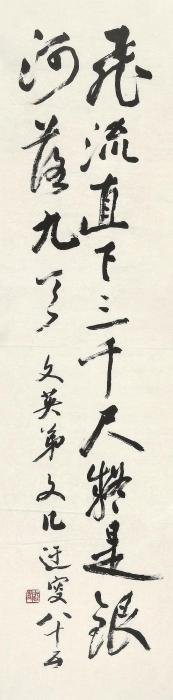 飛流直下三千尺疑是銀
河落九天 文英弟文几 迂叟八十五